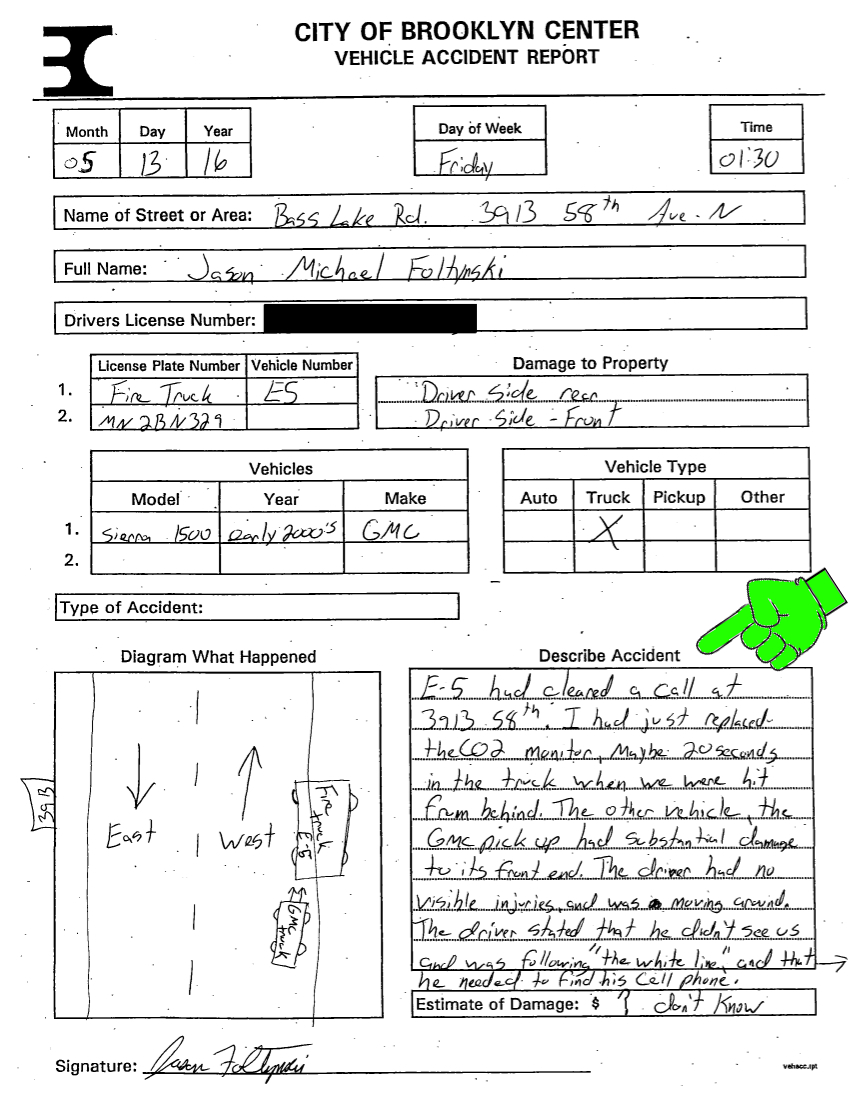 CITY OF BROOKLYN CENTER
VEHICLE ACCIDENT REPORT
Month Day Year
05 13 16
Day of Week
Friday
Time
01:30
Name of Street or Area: Bass Lake Rd. 3913 58th Ave. N
Full Name: Jason Michael Foltynski
Drivers License Number:
License Plate Number Vehicle Number
1. Fire Truck E5
2. MN 2BN329
Damage to Property
Driver side rear
Driver Side - Front
Vehicles
Model Year Make
1. Sierra 1500 early 2000's GMC
2.
Vehicle Type
Auto Truck Pickup Other
X
Type of Accident:
Diagram What Happened
3913
East
West
Fire truck E-5
GMC truck
Describe Accident
E-5 had cleared a call at
3913 58th. I had just replaced
the CO2 monitor, Maybe 20 seconds
in the truck when we were hit
from behind. The other vehicle, the
GMC pick up had substantial damage
to its front end. The driver had no
visible injuries, and was moving around.
The driver stated that he didn't see us
and was following "the white line," and that
he needed to find his cell phone.
Estimate of Damage: $ ? don't know
Signature: Jason Foltynski
vehacc.rpt